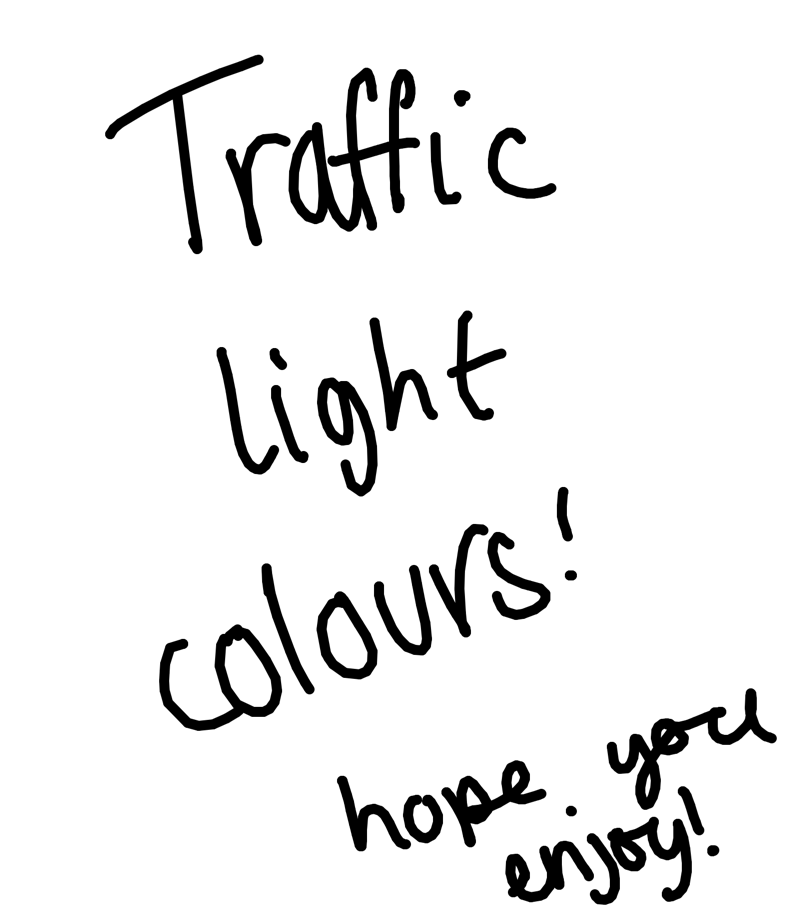 Traffic
light
colours!
hope you
enjoy!